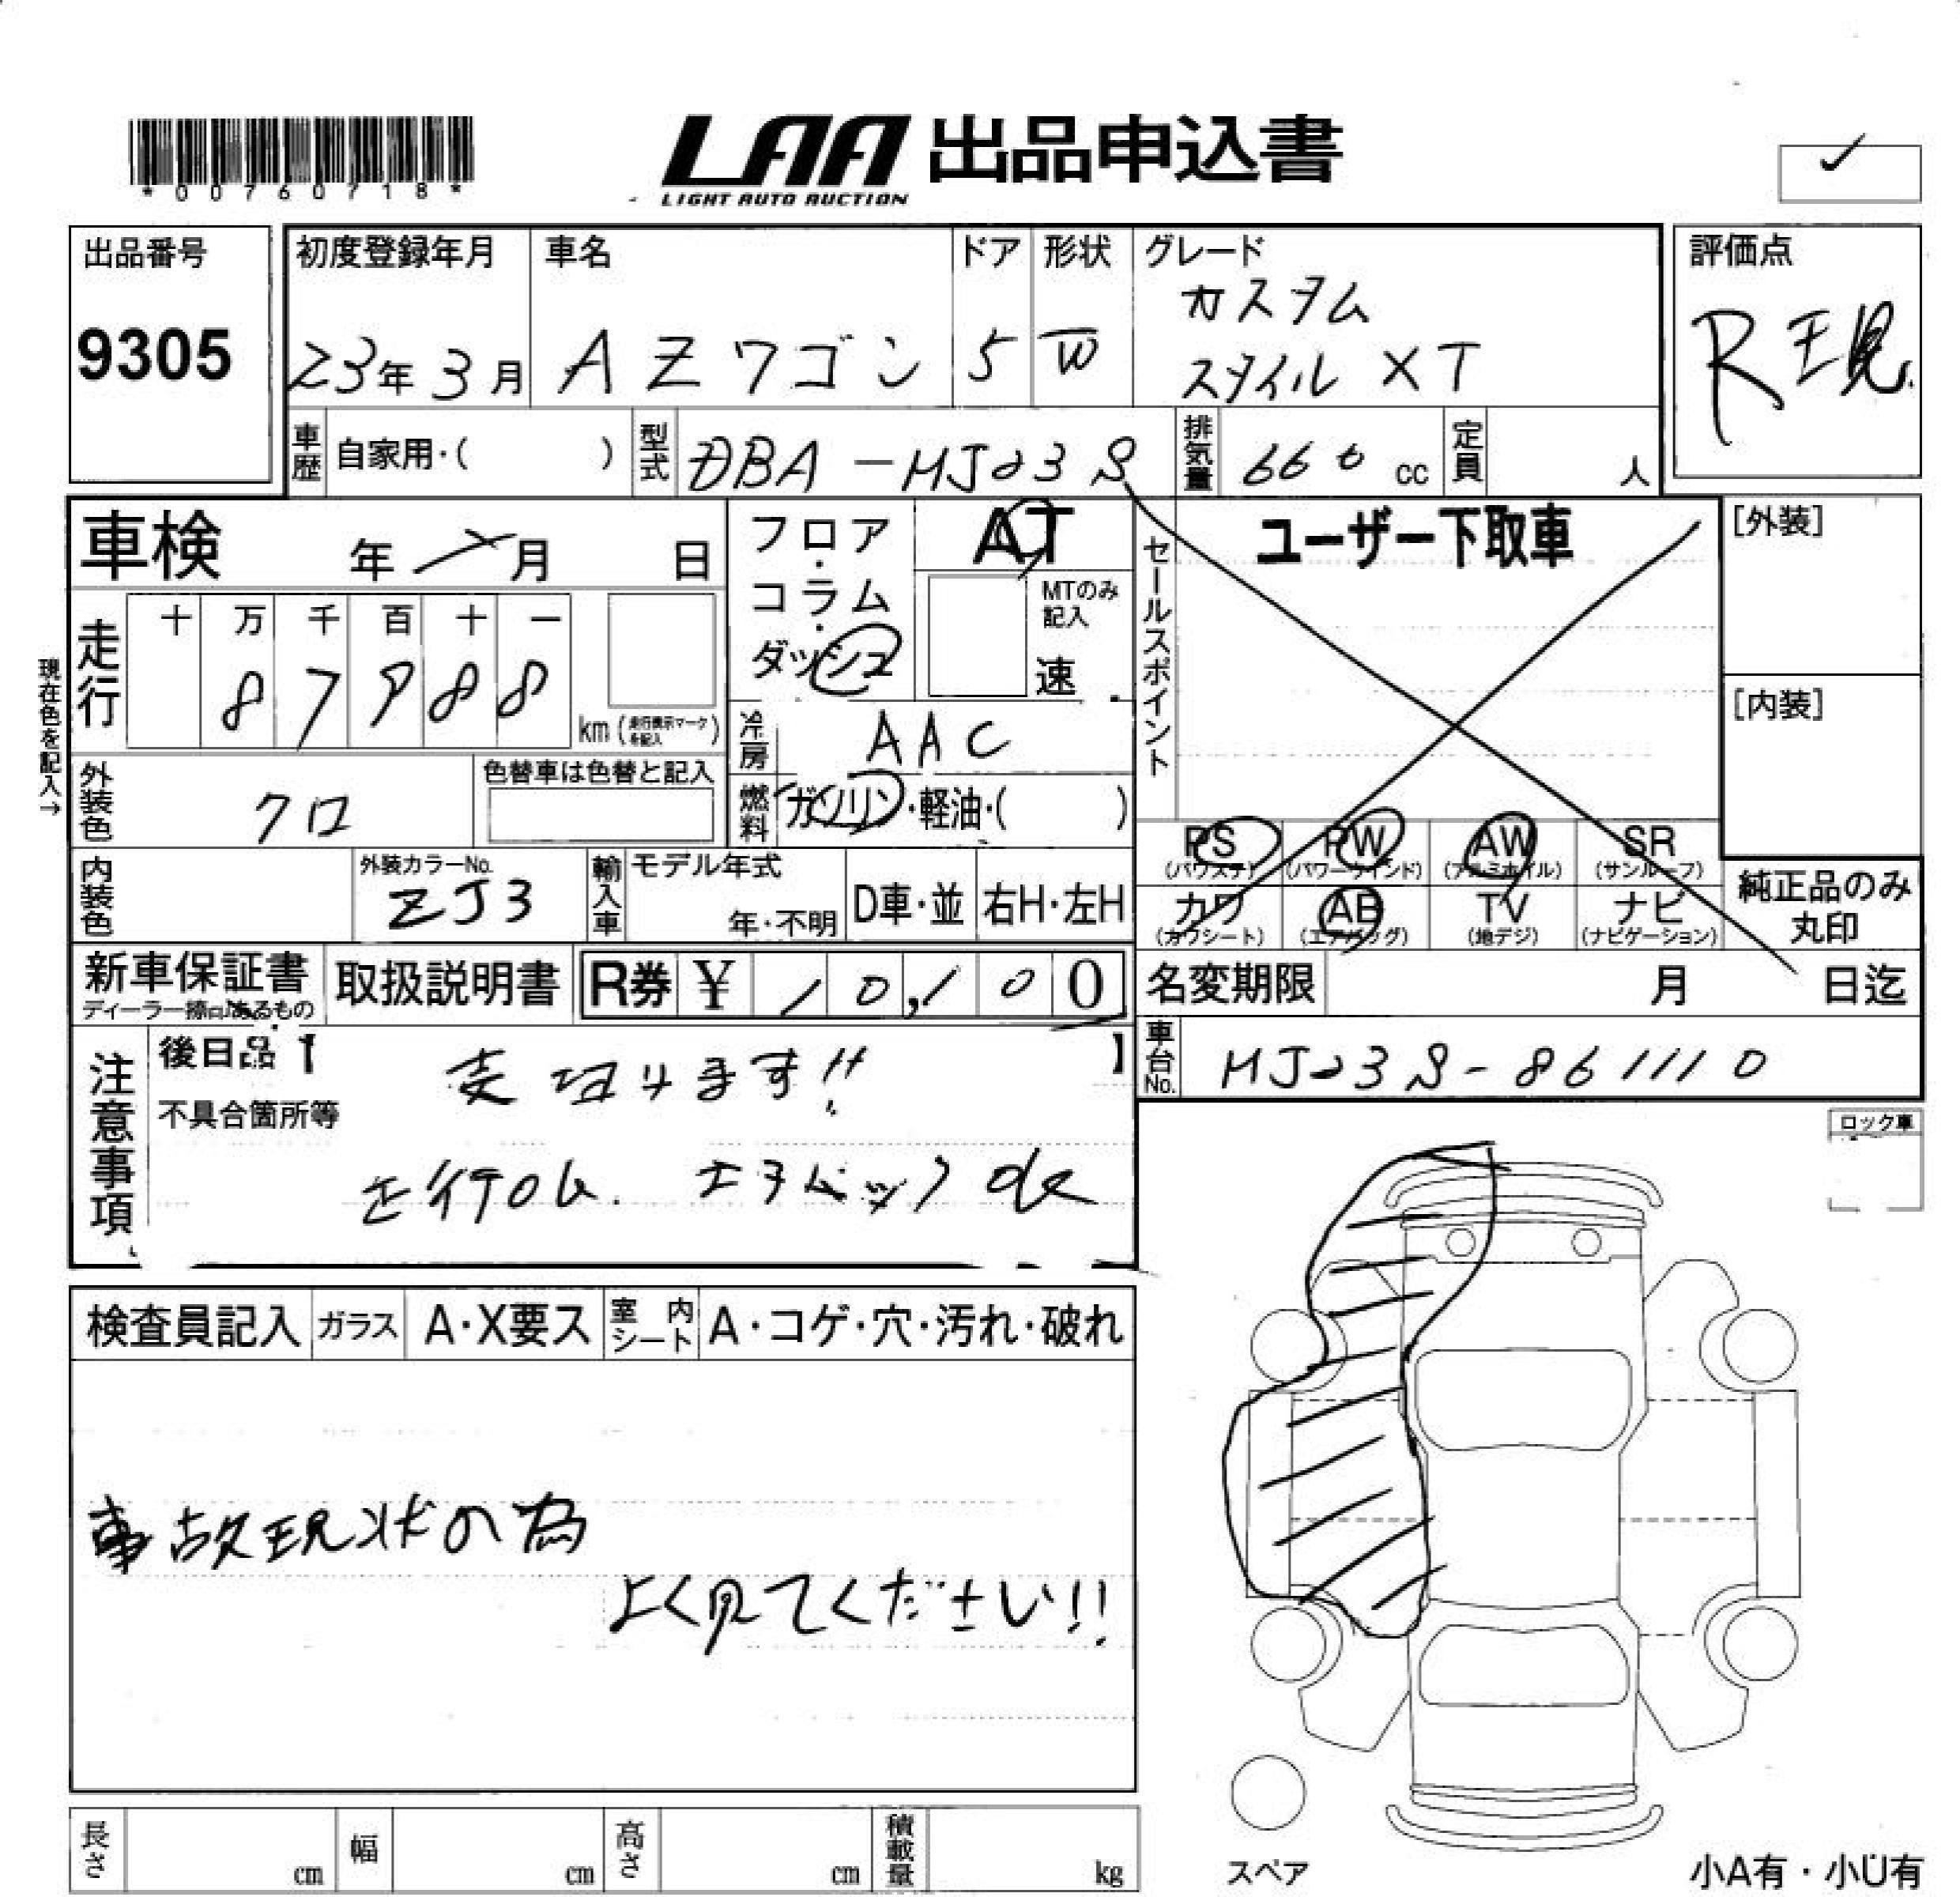 *00760718*
LAA 出品申込書
LIGHT AUTO AUCTION
出品番号
9305
初度登録年月
23年3月
車名
AZワゴン
ドア
5
形状
W
グレード
カスタム
スタイル XT
評価点
R現
車歴 自家用・( )
型式 DBA-MJ23S
排気量 660 cc
定員 人
車検 年 月 日
フロア・コラム・ダッシュ
AT
MTのみ記入
速
セールスポイント
ユーザー下取車
[外装]
[内装]
現在色を記入→
走行
十 万 千 百 十 一
8 7 9 8 8
km (走行表示マークを記入)
冷房 AAC
燃料 ガソリン・軽油・( )
外装色 クロ
色替車は色替と記入
PS (パワステ)
PW (パワーウインド)
AW (アルミホイル)
SR (サンルーフ)
カワ (カワシート)
AB (エアバッグ)
TV (地デジ)
ナビ (ナビゲーション)
純正品のみ丸印
内装色
外装カラーNo.
ZJ3
輸入車 モデル年式
年・不明
D車・並
右H・左H
新車保証書
取扱説明書
R券 ¥ 10,100
名変期限 月 日迄
車台No. MJ23S-861110
注意事項
後日品【 売切ります!! 】
不具合箇所等
走行OK. エアバック OK
ロック車
検査員記入
ガラス A・X要ス
室内シート A・コゲ・穴・汚れ・破れ
事故現状の為
よく見てください!!
長さ cm
幅 cm
高さ cm
積載量 kg
スペア
小A有・小U有